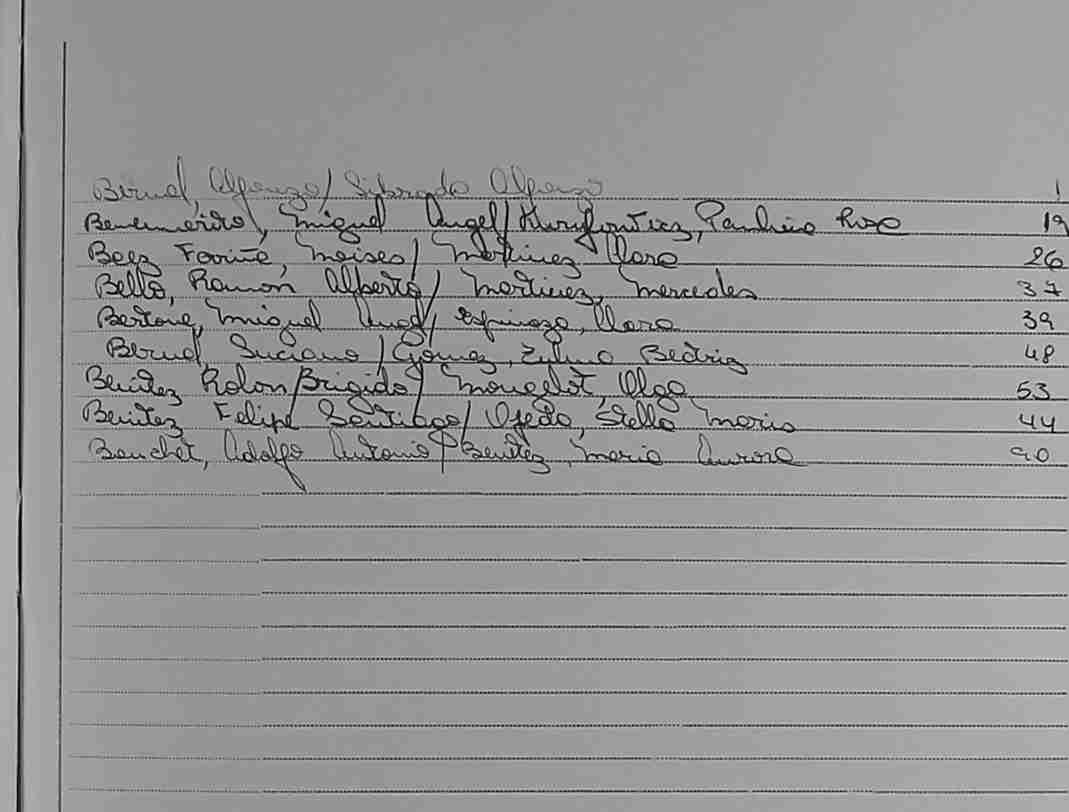 Bernal, Alfonzo / Sibrando Alfonzo 1
Benemerito, Miguel Angel / Patricia Rosa 19
Baez Fariña, Moises / Martinez Clara 26
Bello, Ramon Alberto / Martinez, Mercedes 37
Bertone, Miguel Angel / Espinoza, Clara 39
Bernal, Luciano / Gomez, Zulma Bedriz 48
Benitez Rolon Brigido / Mougelot, Olga 53
Benitez Felipe Santiago / Ojeda, Stella Maris 44
Bauchet, Adolfo Antonio / Benitez, Maria Aurora 90